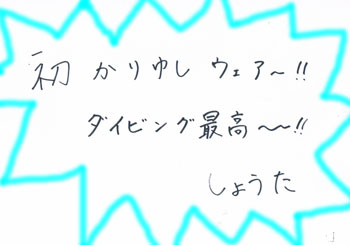 初 かりゆし ウェアー!!
ダイビング最高〜〜!!
しょうた